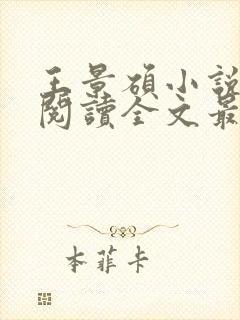 王景碩小說
閱讀全文最
本菲卡